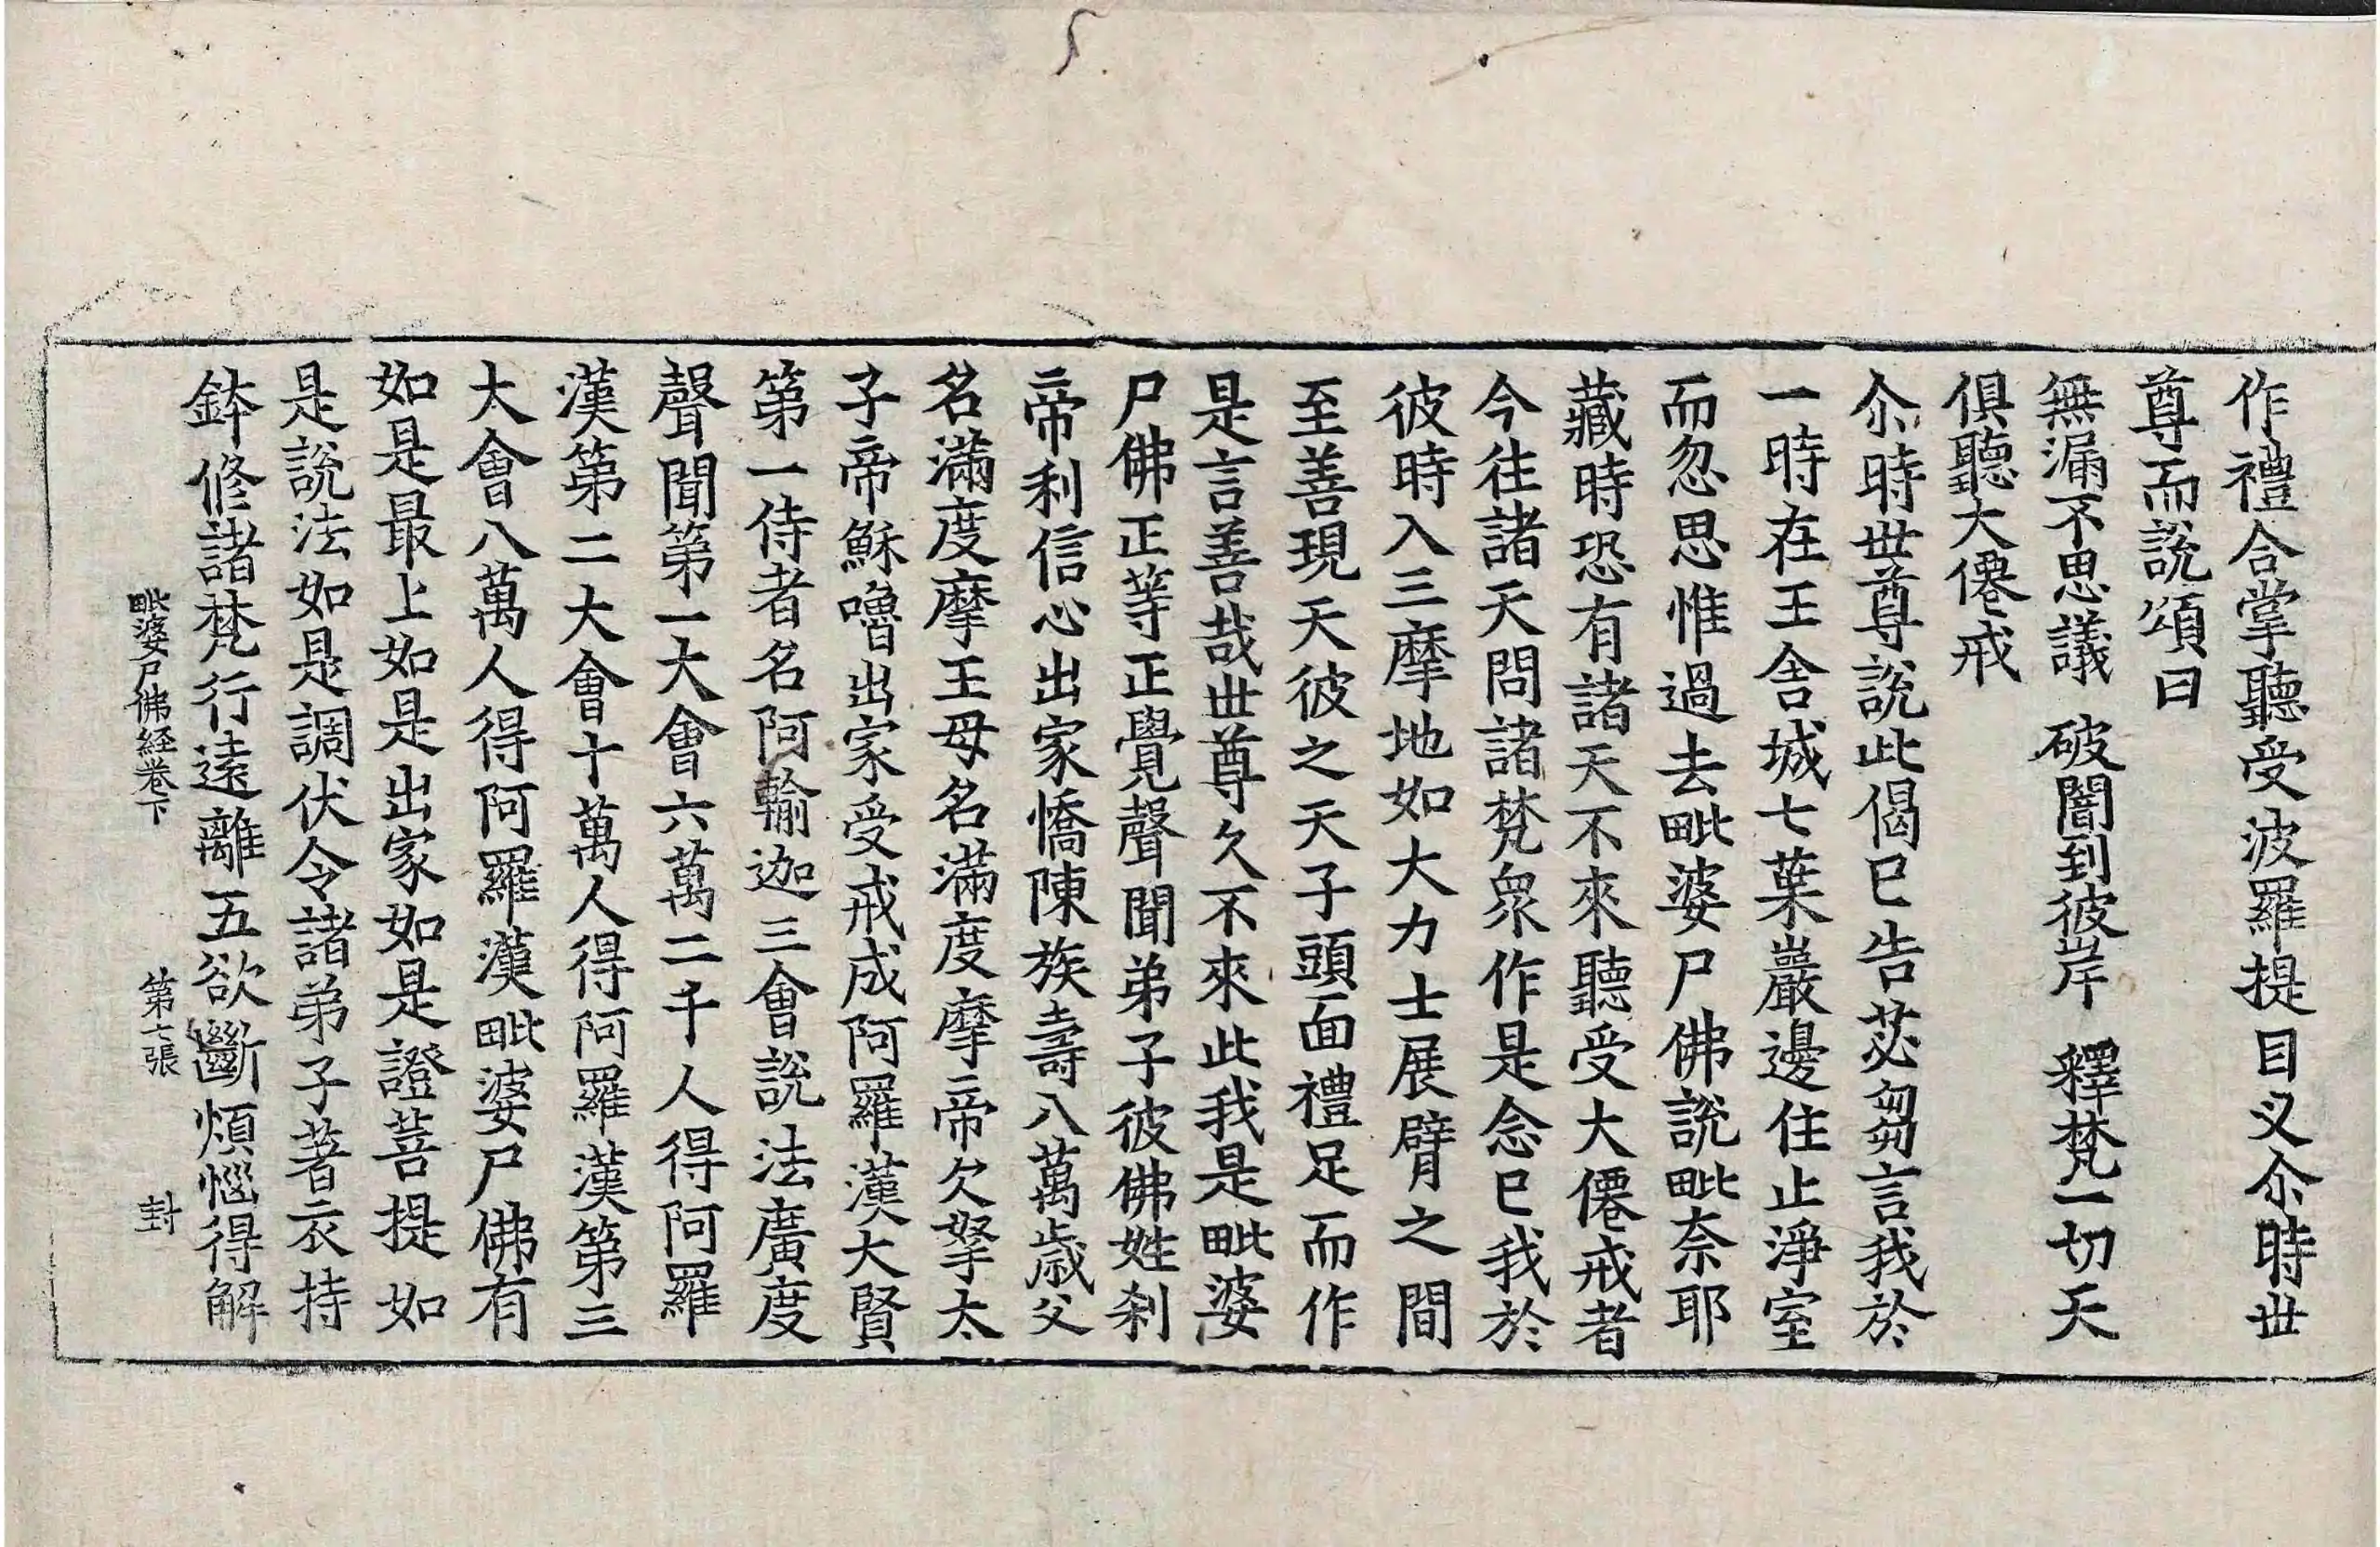 作禮合掌聽受波羅提目义尒時世
尊而說頌曰
無漏不思議　破闇到彼岸　釋梵一切天
俱聽大僊戒
尒時世尊說此偈已告苾芻言我於
一時在王舍城七葉巖邊住止淨室
而忽思惟過去毗婆尸佛說毗奈耶
藏時恐有諸天不來聽受大僊戒者
今往諸天問諸梵衆作是念已我於
彼時入三摩地如大力士展臂之間
至善現天彼之天子頭面禮足而作
是言善哉世尊久不來此我是毗婆
尸佛正等正覺聲聞弟子彼佛姓刹
帝利信心出家憍陳族壽八萬歲父
名滿度摩王母名滿度摩帝欠拏太
子帝穌嚕出家受戒成阿羅漢大賢
第一侍者名阿輸迦三會說法廣度
聲聞第一大會六萬二千人得阿羅
漢第二大會十萬人得阿羅漢第三
大會八萬人得阿羅漢毗婆尸佛有
如是最上如是出家如是證菩提如
是說法如是調伏令諸弟子著衣持
鉢修諸梵行遠離五欲斷煩惱得解
毗婆尸佛経卷下　第七張　封